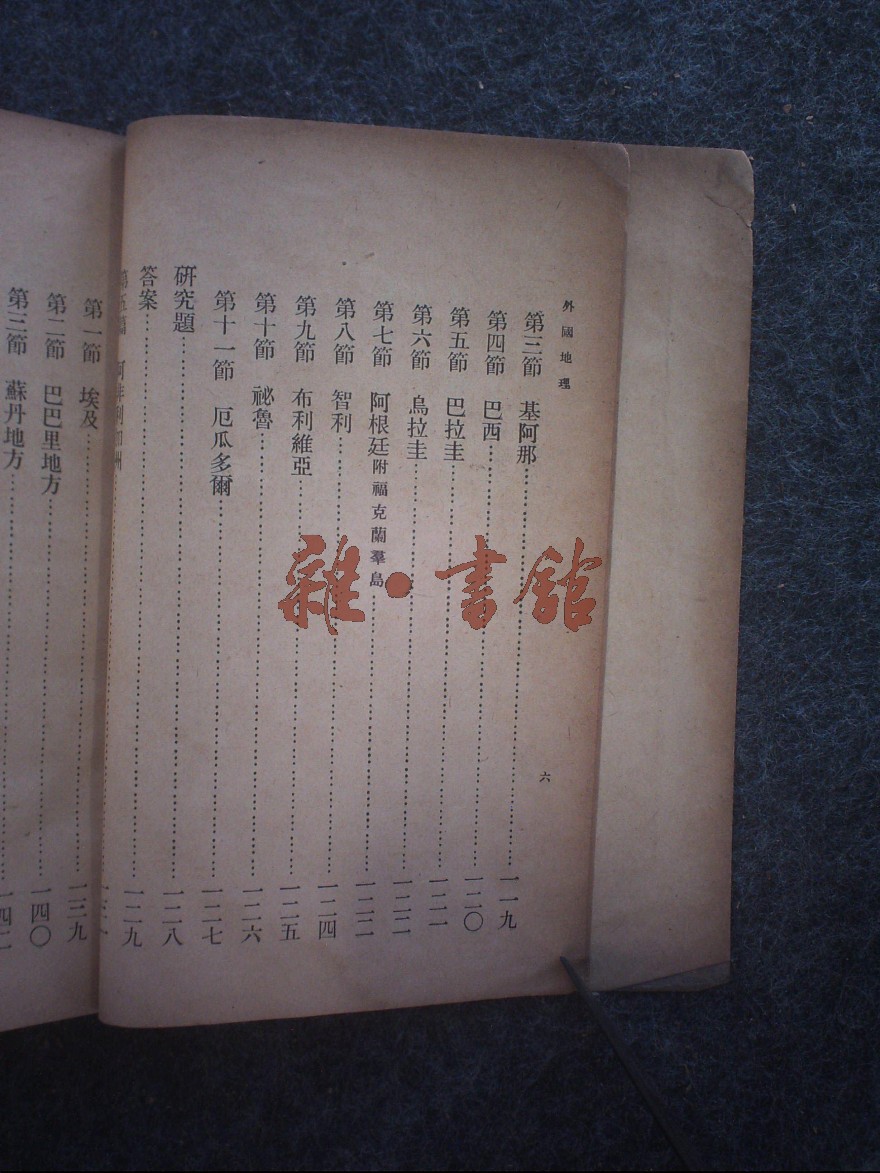 外國地理
六
第三節　基阿那……一一九
第四節　巴西……一二〇
第五節　巴拉圭……一二一
第六節　烏拉圭……一二二
第七節　阿根廷附福克蘭羣島……一二二
第八節　智利……一二四
第九節　布利維亞……一二五
第十節　祕魯……一二六
第十一節　厄瓜多爾……一二七
研究題……一二八
答案……一二九
第五篇　阿非利加州
第一節　埃及……一三九
第二節　巴巴里地方……一四〇
第三節　蘇丹地方……一四二
雜·書館